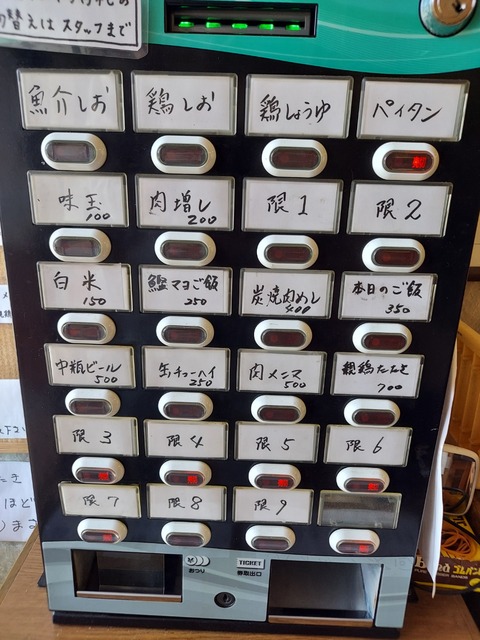 切替えはスタッフまで
魚介しお
鶏しお
鶏しょうゆ
パイタン
味玉
100
肉増し
200
限1
限2
白米
150
鰹マヨご飯
250
炭焼肉めし
400
本日のご飯
350
中瓶ビール
500
缶チューハイ
250
肉メンマ
500
親鶏たたき
700
限3
限4
限5
限6
限7
限8
限9
おつり
TICKET
券取出口